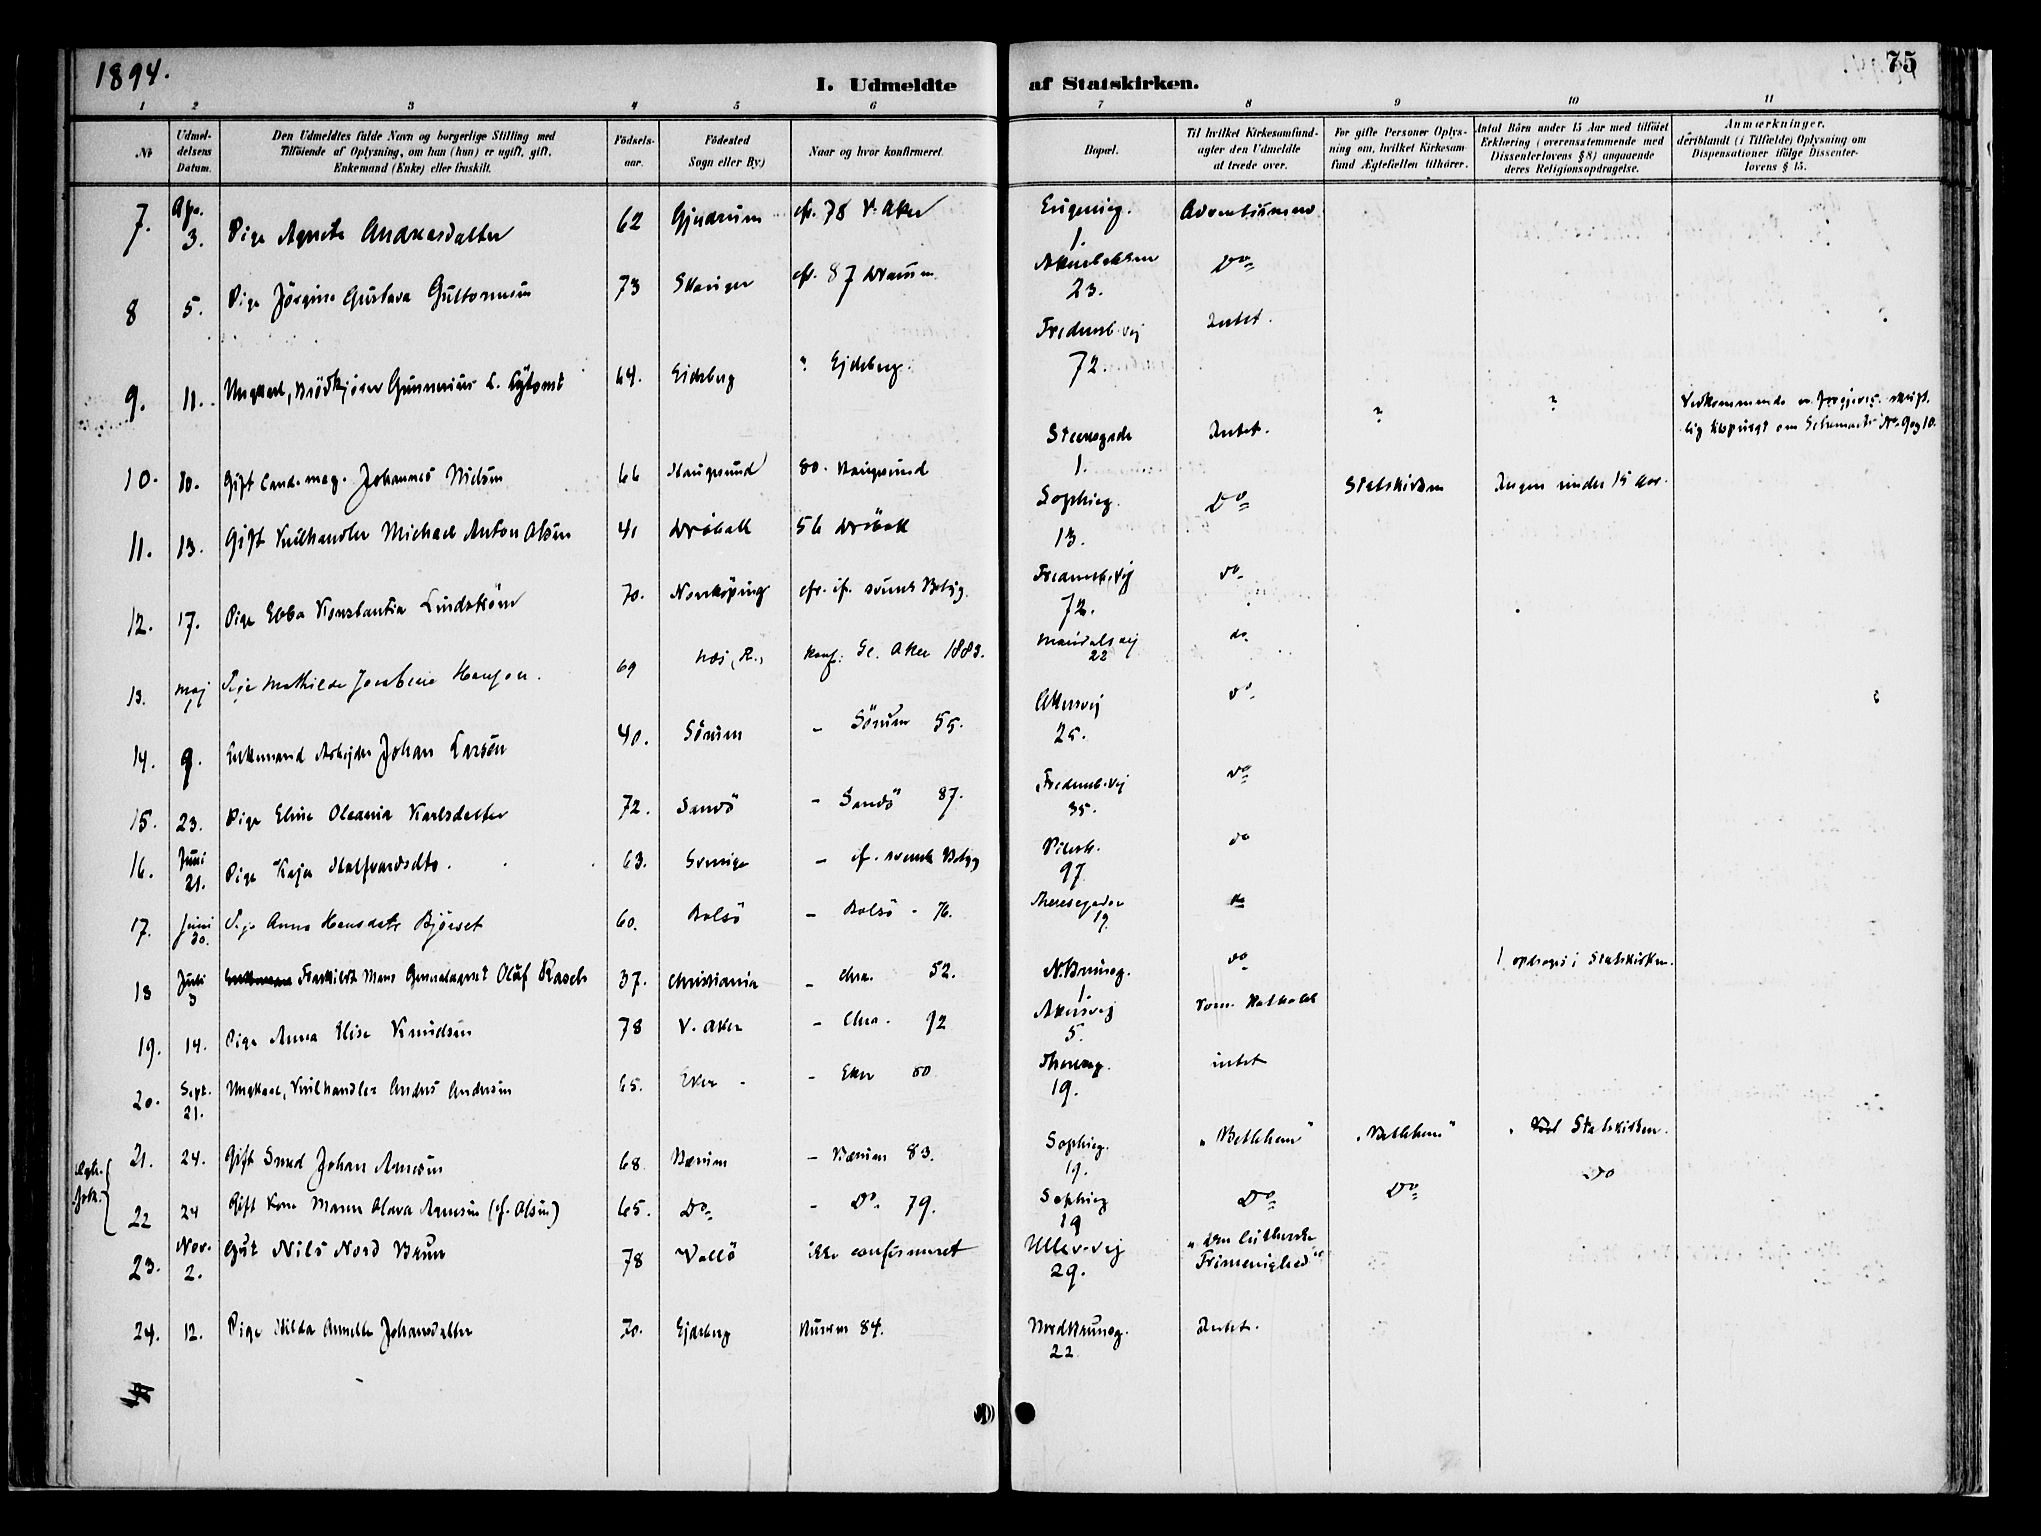 1894.
75
I. Udmeldte af Statskirken.
1 2 3 4 5 6 7 8 9 10 11
№
Udmel-
delsens
Datum.
Den Udmeldtes fulde Navn og borgerlige Stilling med
Tilföiende af Oplysning, om han (hun) er ugift, gift,
Enkemand (Enke) eller fraskilt.
Födsels-
aar.
Födested
Sogn eller By.)
Naar og hvor konfirmeret.
Bopæl.
Til hvilket Kirkesamfund
agter den Udmeldte
at træde over.
For gifte Personer Oplys-
ning om, hvilket Kirkesam-
fund Ægtefællen tilhörer.
Antal Börn under 15 Aar med tilföiet
Erklæring (overensstemmende med
Dissenterlovens § 8) angaaende
deres Religionsopdragelse.
Anmærkninger,
deriblandt (i Tilfælde) Oplysning om
Dispensationer ifölge Dissenter-
lovens § 15.
7. Apr. 3. Pige Agnete Andreasdatter 62 Gjerdrum cfr. 78 V. Aker Eugenieg. 1.
8 5. Pige Jörgine Gustava Guttormsen 73 cfr. 87 Dramm. 23. Do
9. 11. Ungkarl, Gunnerius L. 64. Eidsberg ? Ejdsberg Fredensb.vej 72. Intet.
10. 10. Gift Cand. mag. Johannes Nielsen 66 Haugesund 80. Haugesund Steensgade 1. Intet. ? ? Vedkommende forgjeves skrift-
lig om No. 9 og 10.
11. 13. Gift Michael Anton Olsen 41 Dröbak 56 Dröbak Sophieg. 13. Do Statskirken Ingen under 15 Aar.
12. 17. Pige Ebba Konstantia Lindström 70. Norrköping cfr. if. svensk Fredensb.vej 72. do
13. Maj 1 Pige Mathilde Hansen. 69 Næs, R., konf: Gl. Aker 1883. Maridalsvej 22 do
14. 9. Enkemand Arbejder Johan Larsen 40. Sörum - Sörum 55. Akersvej 25. do
15. 23. Pige Eline Oleania Karlsdatter 72. Sandö - Sandö 87. Fredensb.vej 35. do
16. Juni 21. Pige Kaja Halfvardsdtr. 63. Sverige - if. svensk Pilestr. 97 do
17. Juni 30. Pige Anna Hansdatr Bjørset 60. Bolsö - Bolsö - 76. Theresegaden 19 do
18 Juli 3 Fraskildt Mand Oluf Rasch 37. Christiania - Chra. 52. N. Brunsg. 1 do 1 opdrages i Statskirken.
19. 14. Pige Anna Elise Knudsen 78 V. Aker - Chra. 92 Akersvej 5. Rom. Katholsk
20. Sept. 21. Ungkarl, Anders Andersen 65. Eker - - Eker 80 Thereseg. 19. intet
21. 24. Gift Smed Johan 68 Bærum - Bærum 83. Sophieg. 19. "Bethlehem" "Bethlehem" Statskirken.
22 24 Gift Kone Maren Olava (f. Olsen) 65. Do - Do 79. Sophieg 19 Do Do Do
23. Nov. 2. Gut Nils Nord Bruun 78 Vallö ikke confirmeret Ullev.vej 29. "den lutherske
Frimenighed"
24. 12. Pige Hilda Annette Johansdatter 70. Ejdsberg 84. Nordalbrunsg. 22 Intet.